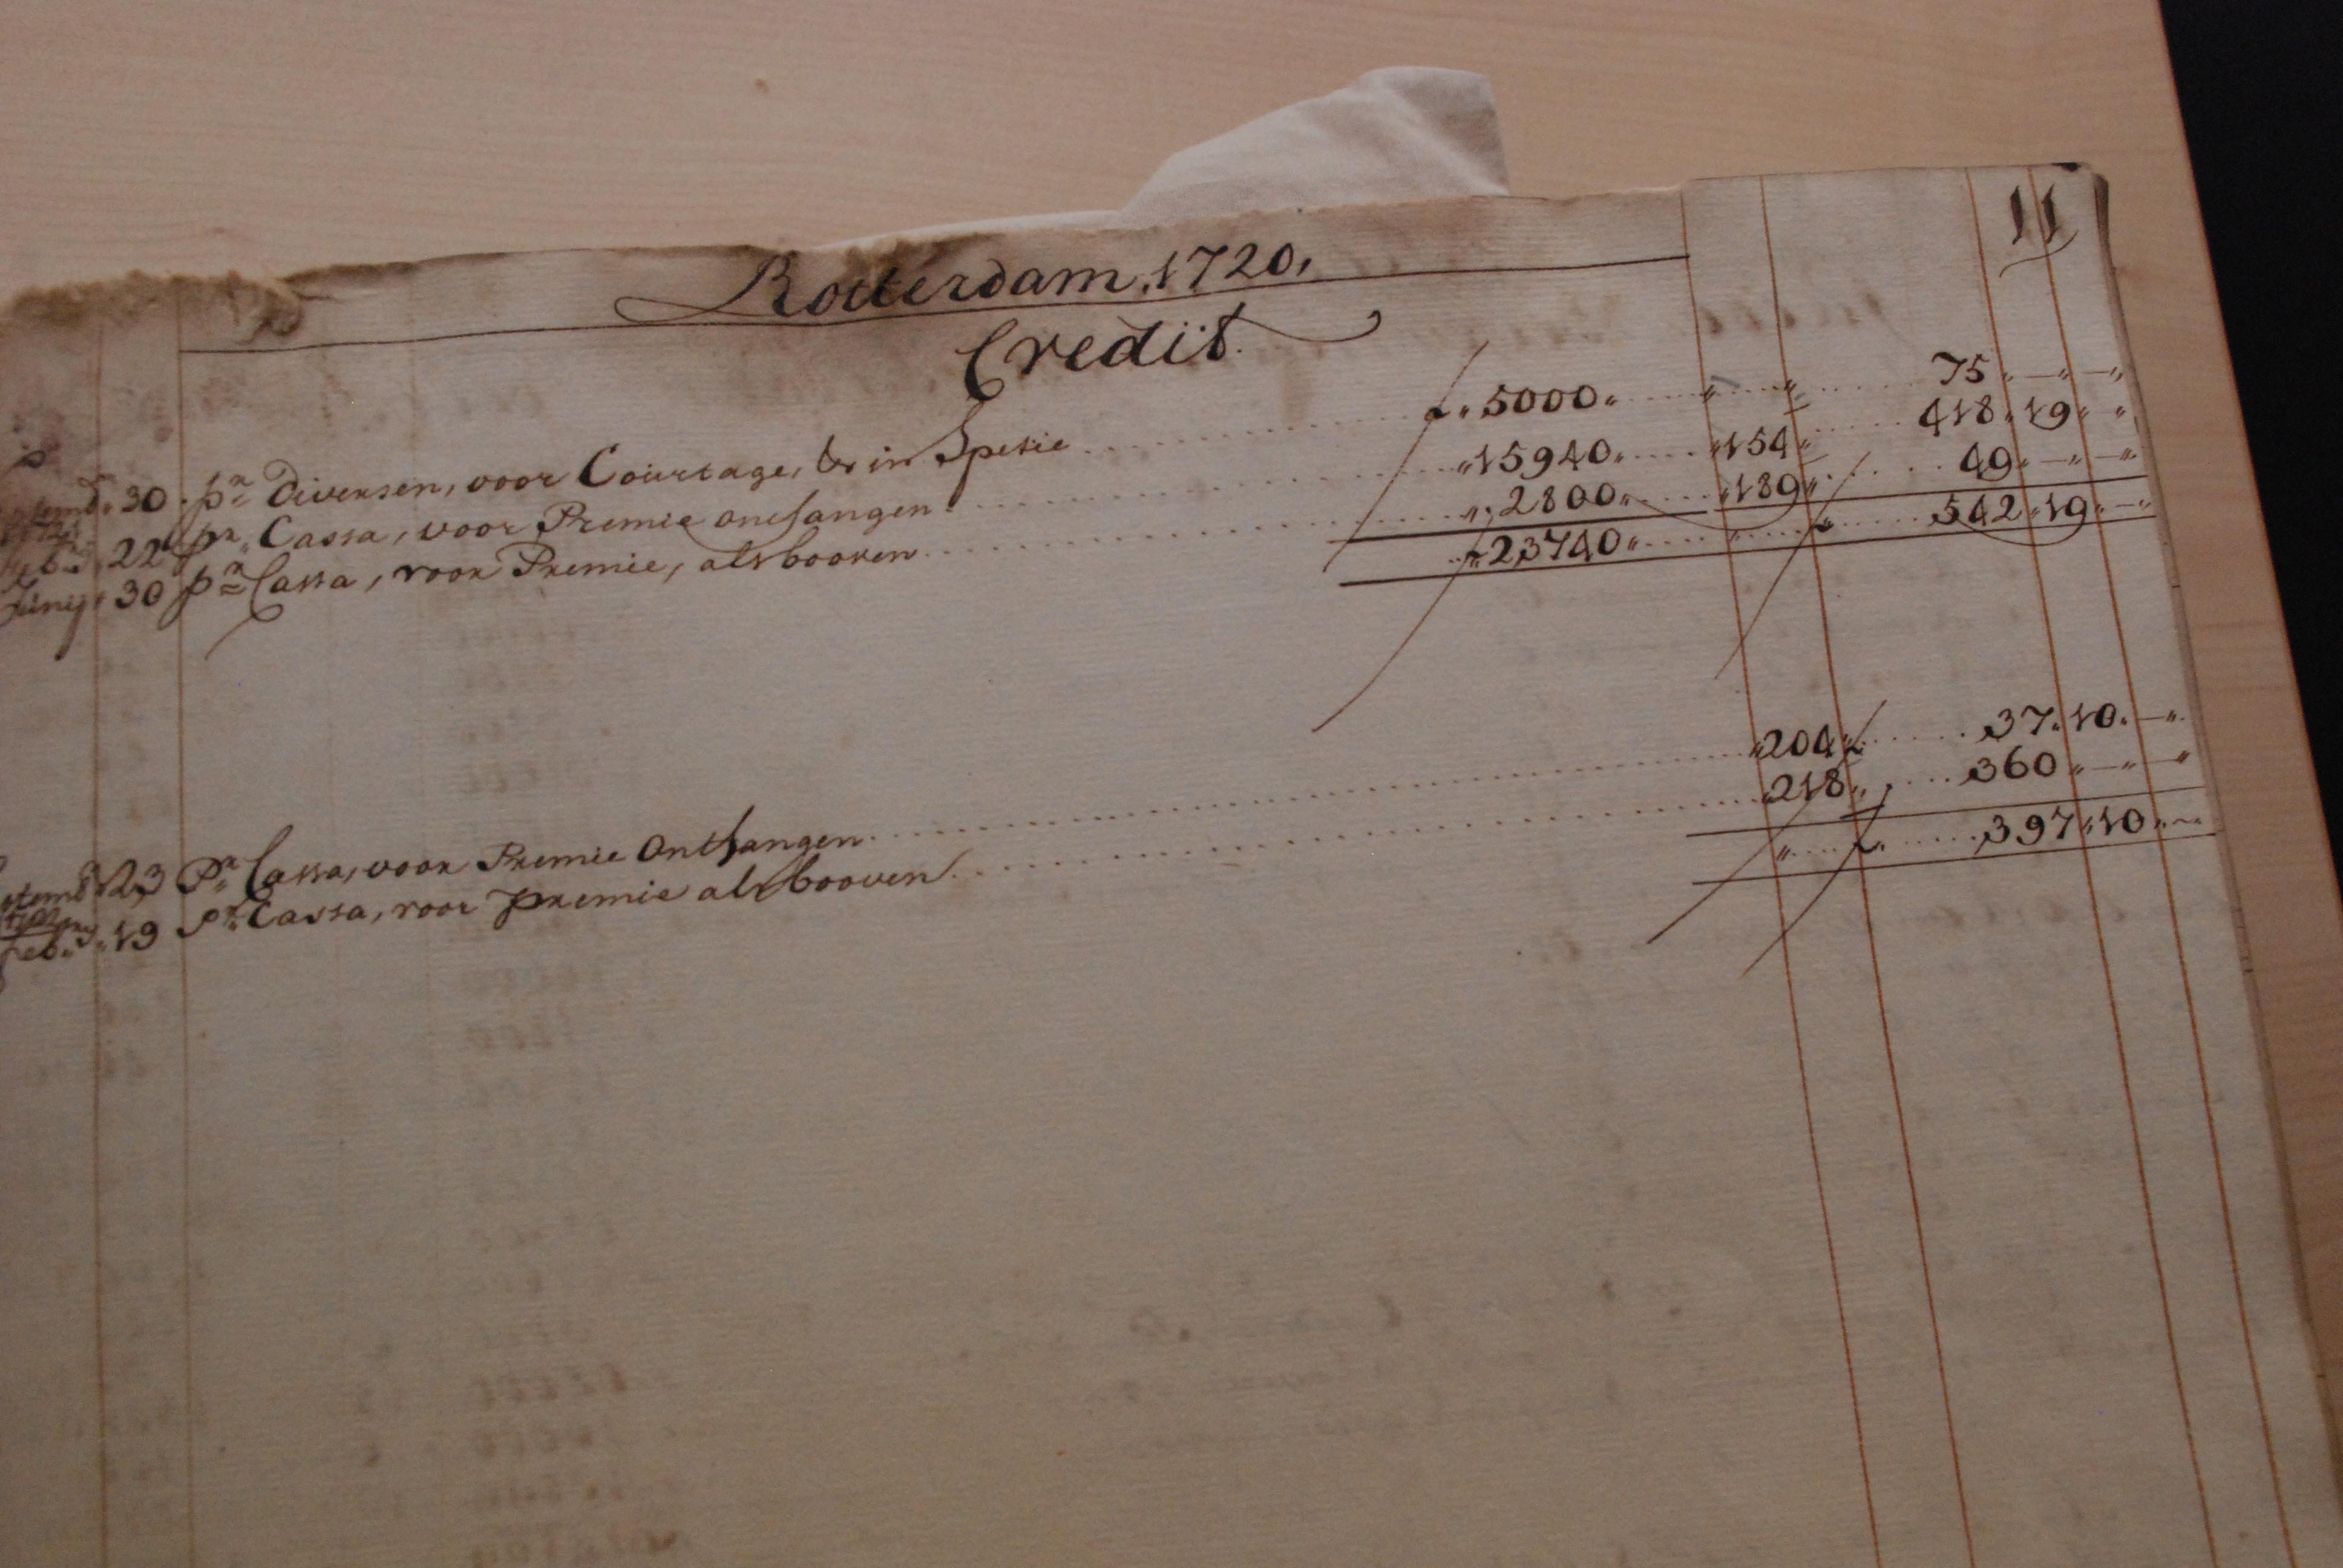 11
Rotterdam. 1720,
Credit.
30 pr Diversen, voor Courtage, & in Spetie f " 5000 " " " 75 " — " — "
22 pr Cassa, voor Premie ontfangen " 15940 " " 154 " 418 " 19 " "
Junij 30 pr Cassa, voor Premie, als booven " 2800 " " 189 " 49 " — " — "
f " 23740 " " f 542 " 19 " — "
23 Pr Cassa, voor Premie Ontfangen " 204 " f 37 " 10 " — "
Feb. 19 Pr Cassa, voor Premie als booven " 218 " 360 " — " — "
" f 397 " 10 " —